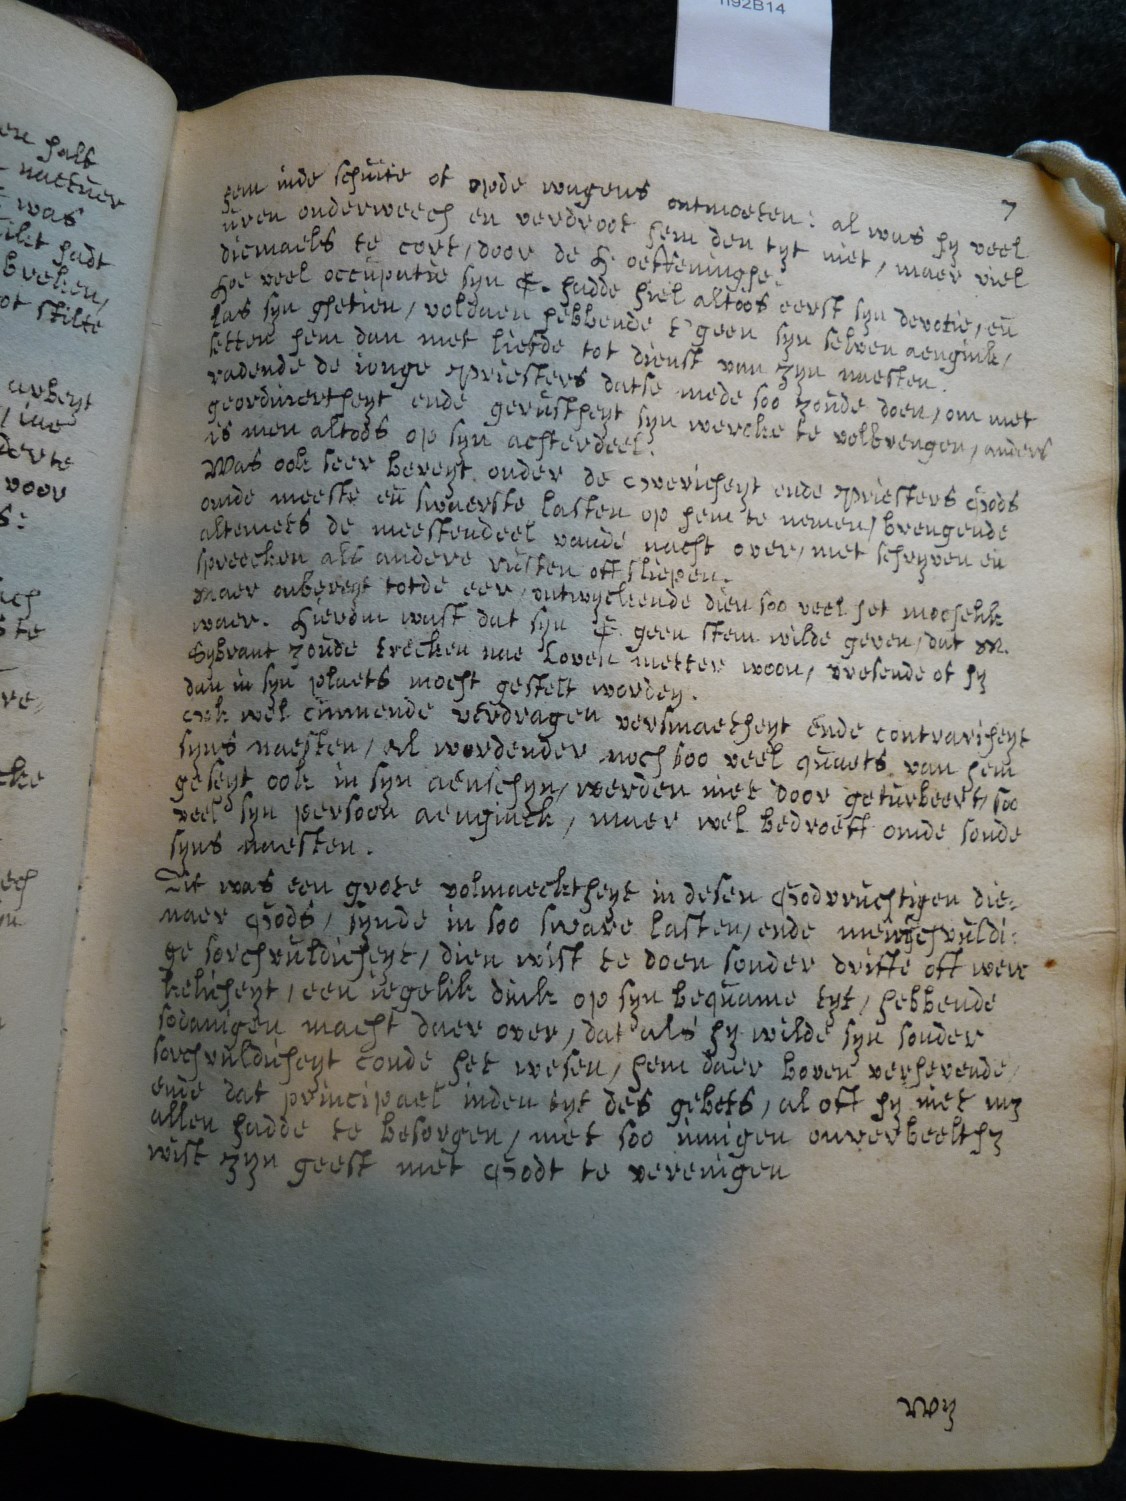 n92B14
7
hem inde schuite of opde wagens ontmoeten: al was hy veel
uren onderweech en verdroot hem den tyt niet, maer viel
diemaels te cort, door de H. oeffeninghe.
Hoe veel occupatie syn E. hadde hiel altoos eerst syn devotie, en
las syn ghetien, voldaen hebbende t'geen syn selven aengink,
setten hem dan met liefde tot dienst van zyn naesten.
radende de ionge Priesters datse mede soo zoude doen, om met
geordineertheyt ende gerustheyt syn wercke te volbrengen, anders
is men altoos op syn achterdeel.
Was ook seer bereyt onder de Overicheyt ende Priesters Gods
omde meeste en swaerste lasten op hem te nemen, brengende
altemets de meestendeel vande nacht over, met schryven en
spreecken als andere rusten off sliepen.
Maer onbereyt totde eer, ontwyckende dien soo veel het mochelik
waer. Hierom wast dat syn E. geen stem wilde geven, dat M.
Sybrant zoude trecken nae Loven metter woon, vresende of hy
dan in syn plaets mocht gestelt worden.
Ook wel cunnende verdragen versmaetheyt ende contrariheyt
syns naesten, al wordender noch soo veel quaets van hem
geseyt ook in syn aenschyn, werden niet door geturbeert, soo
veel syn persoon aenginck, maer wel bedroeft omde sonde
syns naesten.
Dit was een grote volmaecktheyt in desen Godvruchtigen die-
naer Gods, synde in soo sware lasten, ende menichvuldi-
ge sorchvuldicheyt, dien wist te doen sonder drifte oft wer
kelicheyt, een iegelik dink op syn bequame tyt, hebbende
sodanigen macht daer over, dat als hy wilde syn sonder
sorchvuldicheyt conde het wesen, hem daer boven verhevende,
ende dat principael inden tyt des gebets, al oft hy niet
allen hadde te besorgen, niet soo innigen onverbeelt hy
wist zyn geest met Godt te verenigen
Wy
here half
nattuer
was
stilt hadt
breken,
stilte
arbeyt
voor